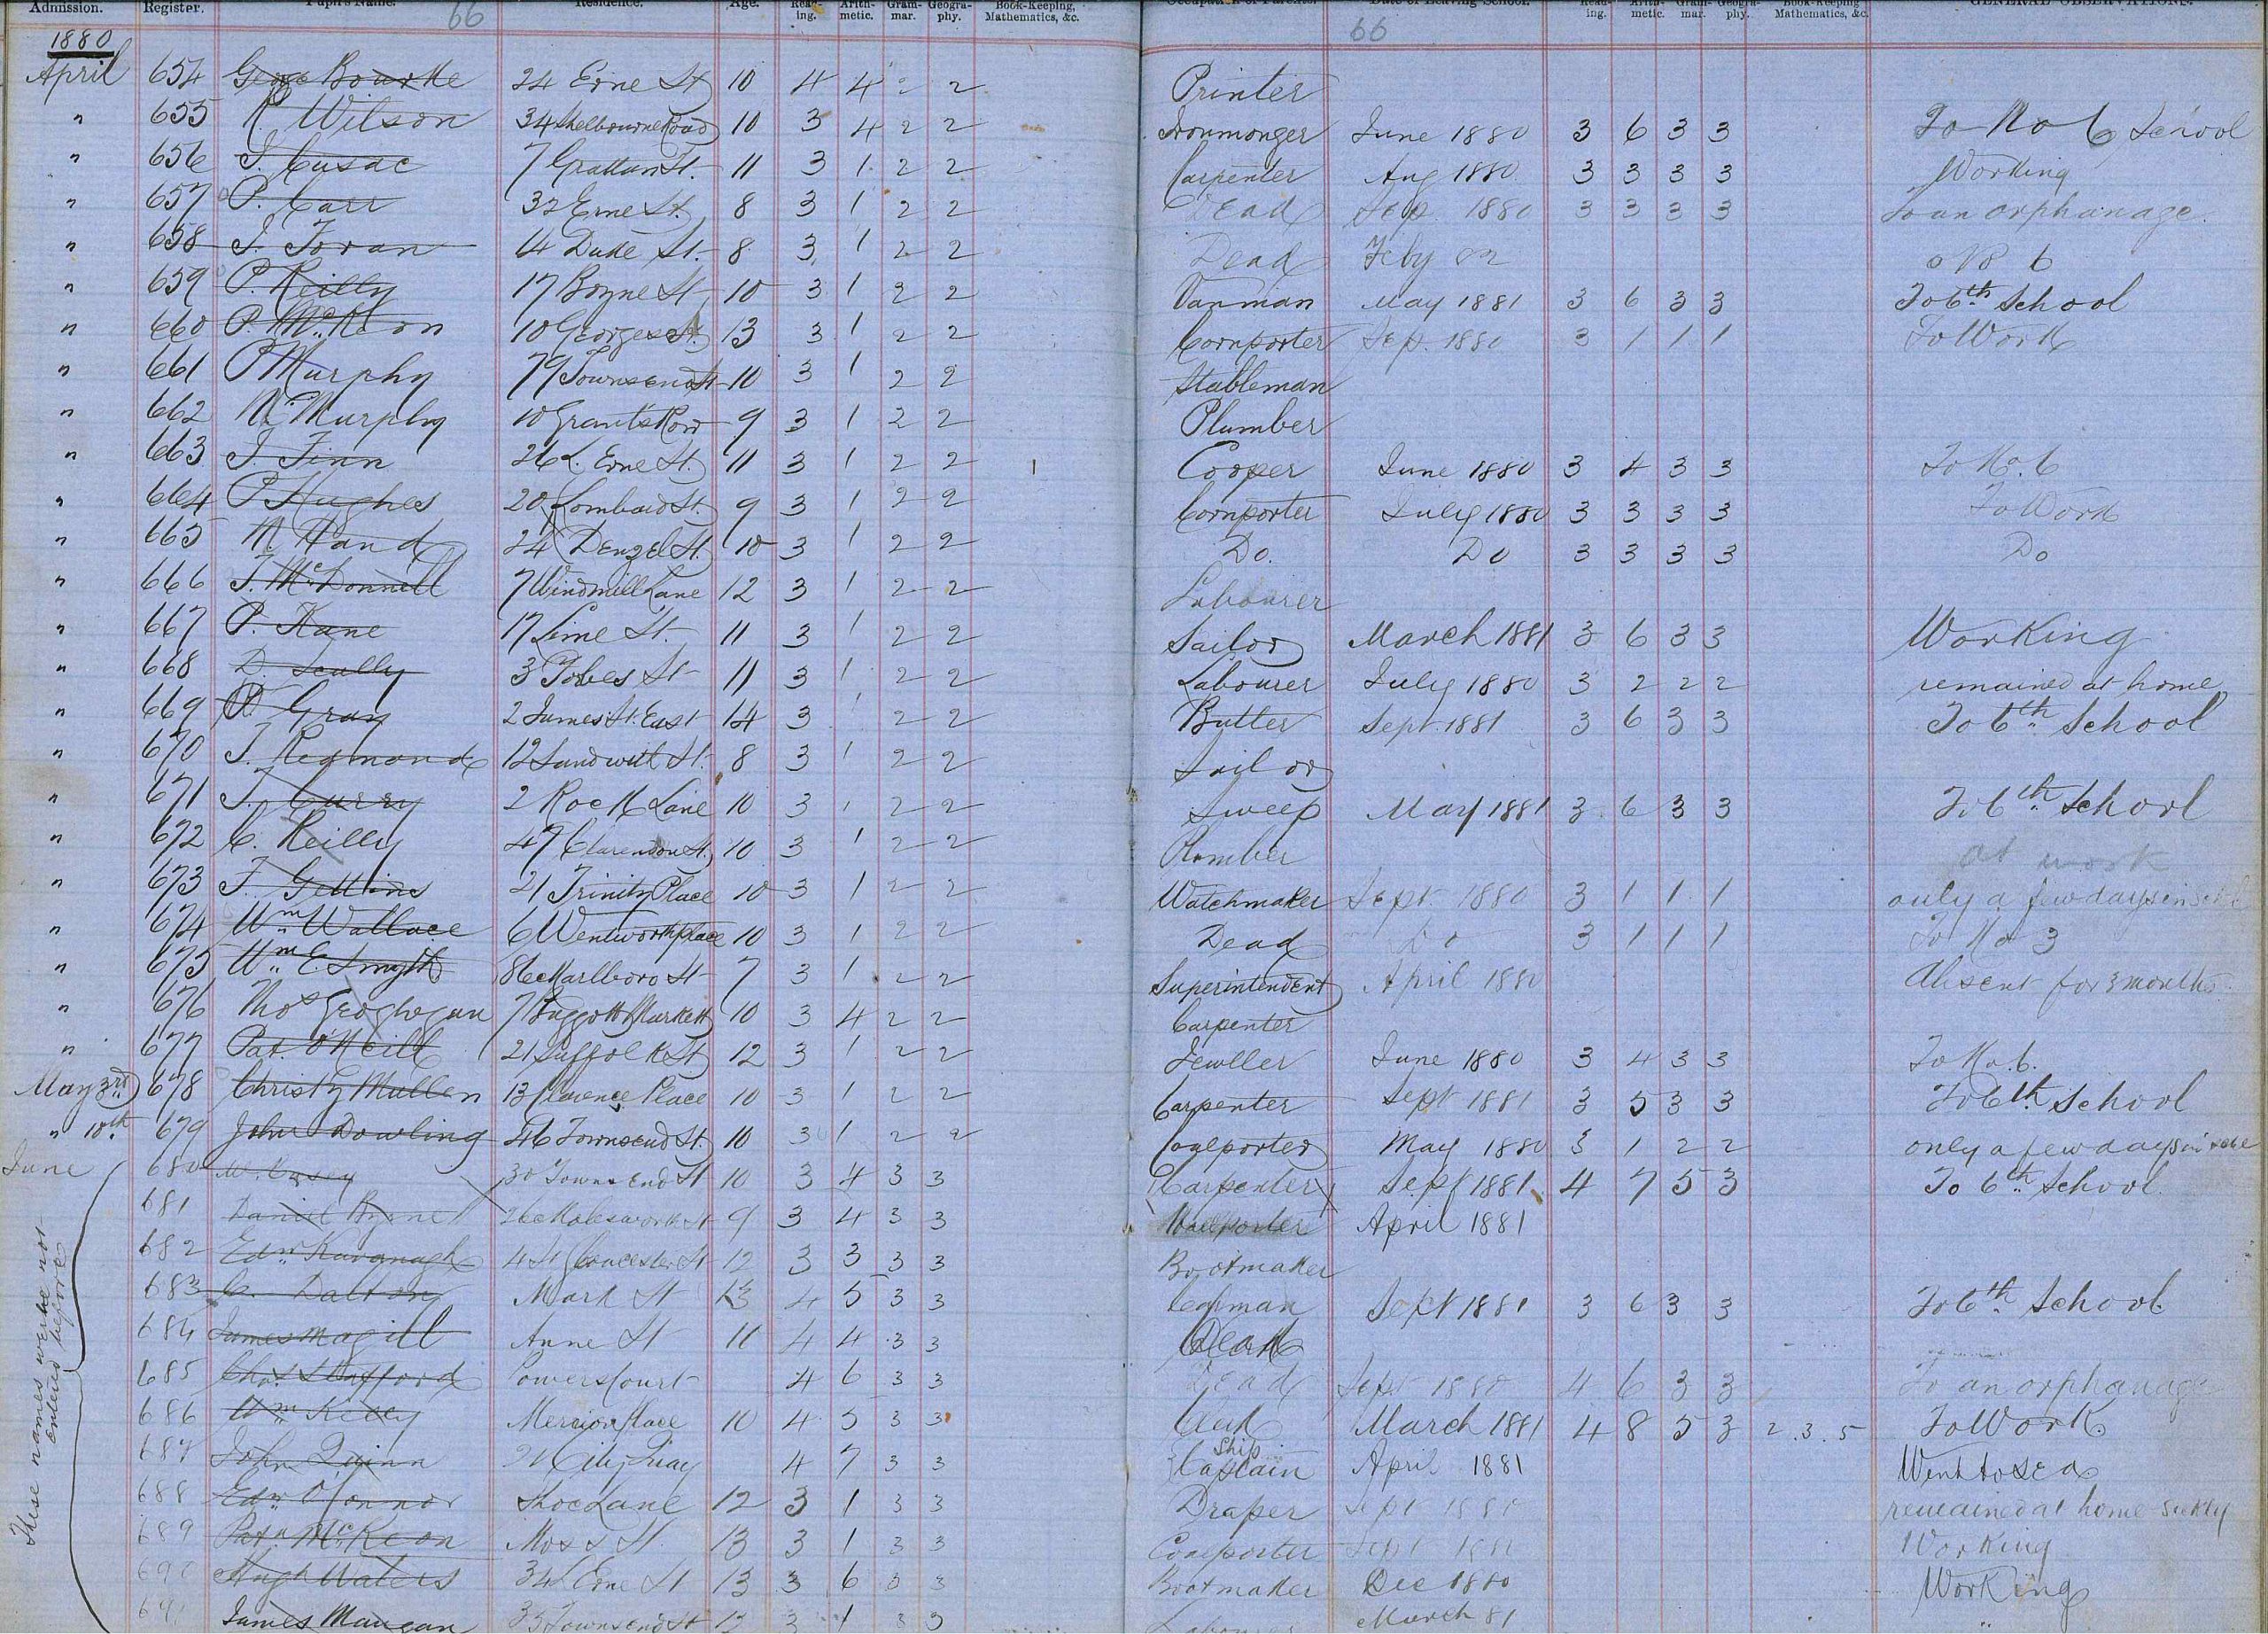 Admission. Register. Pupil's Name. 66 Residence. Age. Read-ing. Arith-metic. Gram-mar. Geogra-phy. Book-Keeping, Mathematics, &c. Occupation of Parents. 66 Date of Leaving School. Read-ing. Arith-metic. Gram-mar. Geogra-phy. Book-Keeping Mathematics, &c. GENERAL OBSERVATIONS.
1880
April 654 George Bourke 24 Erne St 10 4 4 2 2 Printer
" 655 R. Wilson 34 Shelbourne Road 10 3 4 2 2 Ironmonger June 1880 3 6 3 3 To No 6 School
" 656 J. Cusac 7 Grattan St. 11 3 1 2 2 Carpenter Aug 1880 3 3 3 3 Working
" 657 P. Carr 32 Erne St. 8 3 1 2 2 Dead Sep. 1880 3 3 3 3 To an orphanage.
" 658 J. Foran 14 Duke St. 8 3 1 2 2 Dead Feby 82
" 659 P. Reilly 17 Boyne St 10 3 1 2 2 Vanman May 1881 3 6 3 3 To 6th School
" 660 P. McKeon 10 Georges St. 13 3 1 2 2 Cornporter Sep. 1880 3 1 1 1 To Work
" 661 P Murphy 79 Townsend St 10 3 1 2 2 Stableman
" 662 M. Murphy 10 Grants Row 9 3 1 2 2 Plumber
" 663 J. Finn 26 L. Erne St. 11 3 1 2 2 Cooper June 1880 3 4 3 3 To No. 6
" 664 P Hughes 20 Lombard St. 9 3 1 2 2 Cornporter July 1880 3 3 3 3 To Work
" 665 M Hand 24 Denzel St. 10 3 1 2 2 Do. Do 3 3 3 3 Do
" 666 J. McDonnell 7 Windmill Lane 12 3 1 2 2 Labourer
" 667 P. Kane 17 Lime St. 11 3 1 2 2 Sailor March 1881 3 6 3 3 Working
" 668 D. Scully 3 Fobes St 11 3 1 2 2 Labourer July 1880 3 2 2 2 remained at home
" 669 Gray 2 James St. East 14 3 2 2 Butler Sept. 1881 3 6 3 3 To 6th School
" 670 J. Redmond 12 Sandwith St. 8 3 1 2 2 Sailor
" 671 J. Curry 2 Rock Lane 10 3 1 2 2 Sweep May 1881 3 6 3 3 To 6th School
" 672 C. Reilly 47 Clarendon St. 10 3 1 2 2 Plumber at work
" 673 J. Gettins 21 Trinity Place 10 3 1 2 2 Watchmaker Sept. 1880 3 1 1 1 only a few days in
" 674 Wm Wallace 6 Wentworth place 10 3 1 2 2 Dead Do 3 1 1 1 To No 3
" 675 Wm E. Smyth 86 Marlboro St 7 3 1 2 2 Superintendent April 1880 Absent for 3 months.
" 676 Thos Geoghegan 7 Baggott Markett 10 3 4 2 2 Carpenter
" 677 Pat. O'Neill 21 Suffolk St 12 3 1 2 2 Jewller June 1880 3 4 3 3 To No. 6.
May 3rd 678 Christy Mullen 13 Clarence Place 10 3 1 2 2 Carpenter Sept 1881 3 5 3 3 To 6th School
" 10th 679 John Dowling 46 Townsend St. 10 3 1 2 2 Coalporter May 1880 3 1 2 2 only a few days in
June 680 W. Casey 30 Townsend St 10 3 4 3 3 Carpenter Sept 1881 4 7 5 3 To 6th School.
681 Daniel Byrne 26 Molesworth St 9 3 4 3 3 April 1881
682 Edw Kavanagh 4 St Gloucester St 12 3 3 3 3 Bootmaker
683 C. Dalton Mark St 13 4 5 3 3 Cabman Sept 1881 3 6 3 3 To 6th School.
684 James Magill Anne St 11 4 4 3 3 Clerk
685 Chas Stafford Powerscourt 4 6 3 3 Dead Sept 1880 4 6 3 3 To an orphanage
686 Wm Kelly Merrion place 10 4 5 3 3 Clerk March 1881 4 8 5 3 2.3.5 To Work.
687 John Quinn City Quay 4 7 3 3 Ship Captain April 1881 Went to sea
688 Edw O'Connor Shoe Lane 12 3 1 3 3 Draper Sept 1880 remained at home sickly
689 Patk McKeon Moss St. 13 3 1 3 3 Coalporter Sept 1880 Working
690 Hugh Waters 34 L Erne St 13 3 6 3 3 Bootmaker Dec 1880 Working
691 James Mangan 35 Townsend St 12 3 1 3 3 Labourer March 81 "
These names were not entered before